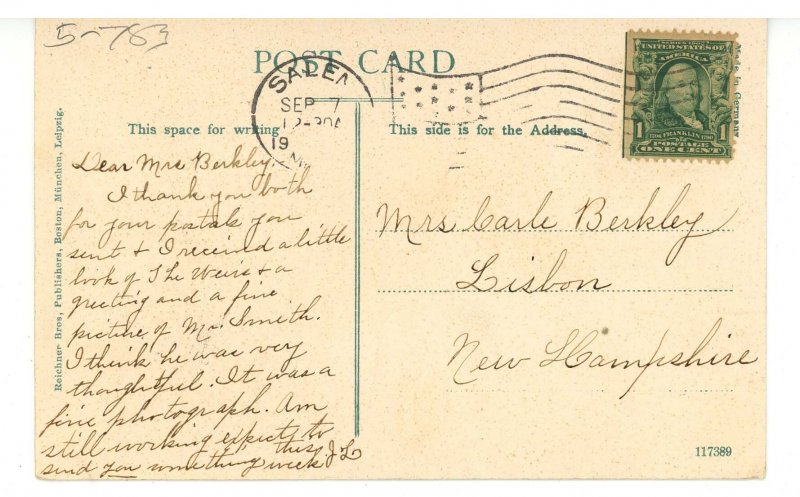 5-783
POST CARD
SALEM
SEP 7
19
This space for writing
This side is for the Address.
Made in Germany
UNITED STATES OF AMERICA
1 1706 FRANKLIN 1790 1
POSTAGE
ONE CENT
Reichner Bros, Publishers, Boston, München, Leipzig.
Dear Mrs Berkley,
I thank you both
for your postals you
sent & I received a little
book of The Weirs & a
greeting and a fine
picture of Mr. Smith.
I think he was very
thoughtful. It was a
fine photograph. Am
still working expect to
send you something this week J L
Mrs Carle Berkley
Lisbon
New Hampshire
117389